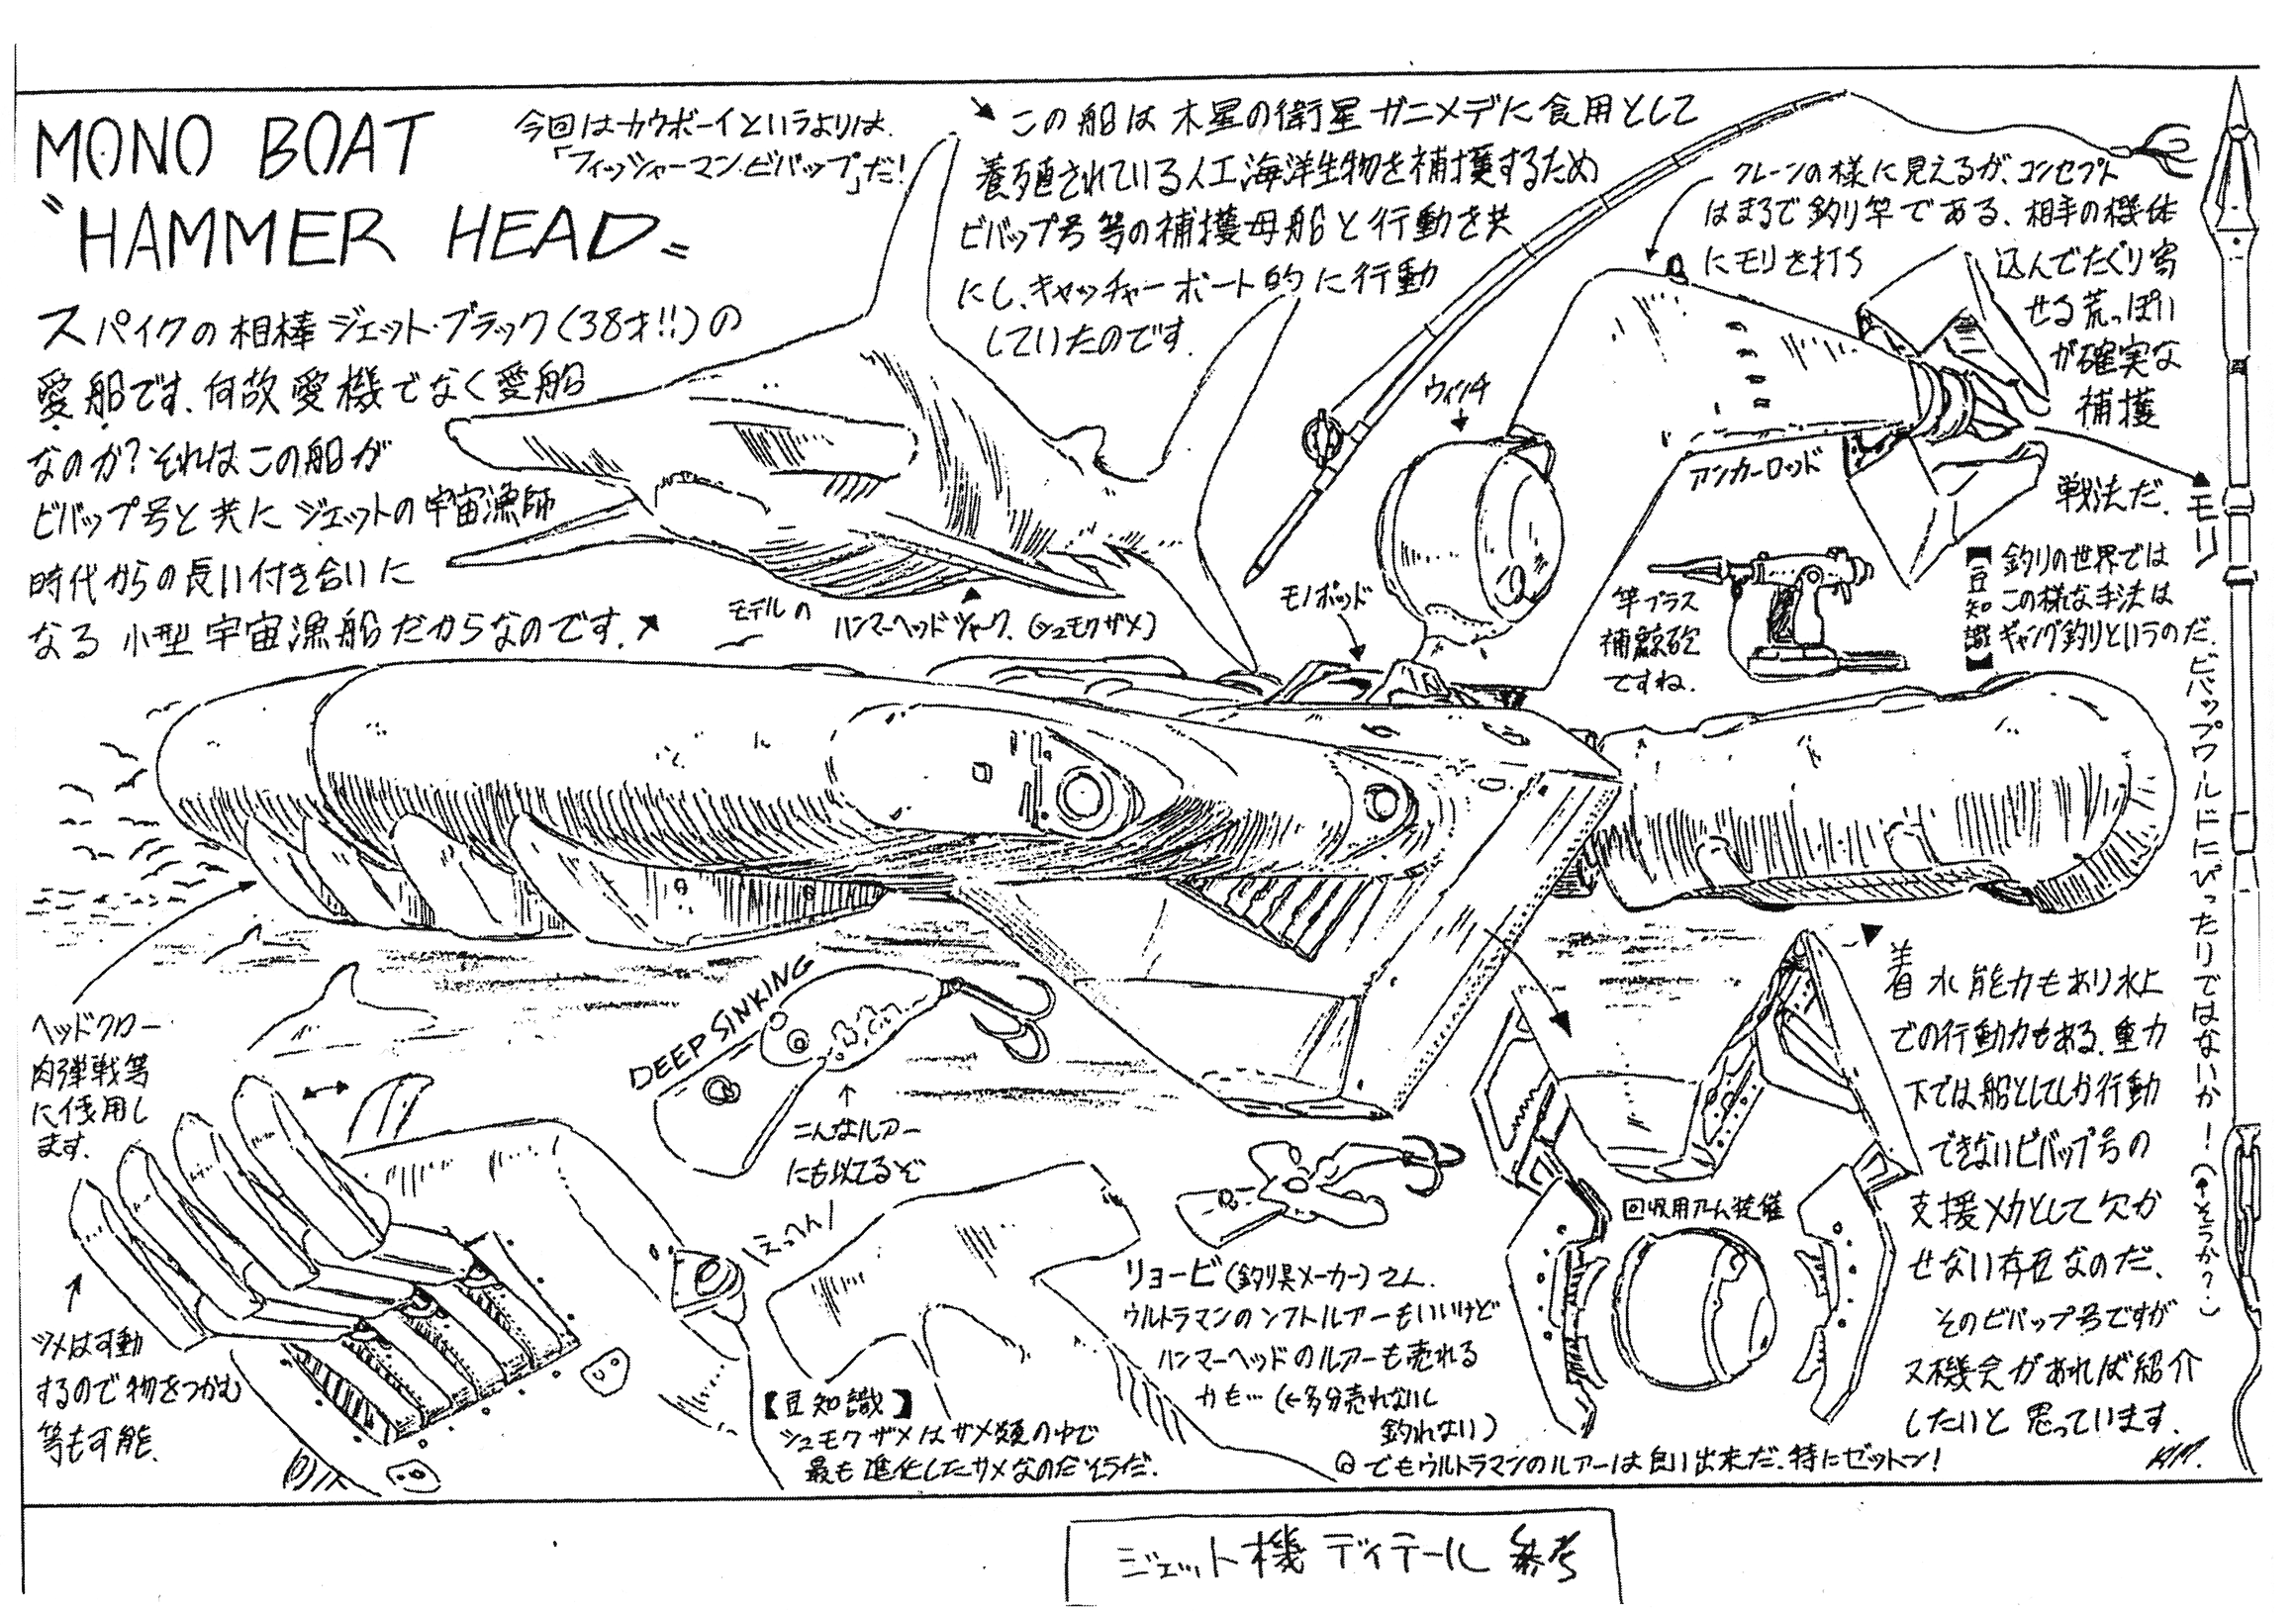 MONO BOAT
〝HAMMER HEAD〟
今回はカウボーイというよりは
「フィッシャーマン・ビバップ」だ!
スパイクの相棒ジェット・ブラック(38才!!)の
愛船です.何故愛機でなく愛船
なのか?それはこの船が
ビバップ号と共にジェットの宇宙漁師
時代からの長い付き合いに
なる小型宇宙漁船だからなのです.
この船は木星の衛星ガニメデに食用として
養殖されている人工海洋生物を補獲するため
ビバップ号等の補獲母船と行動を共
にし、キャッチャーボート的に行動
していたのです.
クレーンの様に見えるが、コンセプト
はまるで釣り竿である、相手の機体
にモリを打ち
込んでたぐり寄
せる荒っぽい
が確実な
補獲
戦法だ.
モリ
ウィンチ
アンカーロッド
モノポッド
竿プラス
補鯨砲
ですね.
【豆知識】
釣りの世界では
この様な手法は
ギャング釣りというのだ.
ビバップワールドにぴったりではないか!(↑そうか?)
モデルの
ハンマーヘッドシャーク.(シュモクザメ)
ヘッドクロー
肉弾戦等
に使用し
ます.
DEEP SINKING
こんなルアー
にも似てるぞ
えっへん!
ツメは可動
するので物をつかむ
等も可能.
【豆知識】
シュモクザメはサメ類の中で
最も進化したサメなのだそうだ.
リョービ(釣り具メーカー)さん.
ウルトラマンのソフトルアーもいいけど
ハンマーヘッドのルアーも売れる
かも…(←多分売れないし
釣れない)
でもウルトラマンのルアーは良い出来だ.特にゼットン!
回収用アーム装備
着水能力もあり水上
での行動力もある.重力
下では船としてしか行動
できないビバップ号の
支援メカとして欠か
せない存在なのだ、
そのビバップ号ですが
又機会があれば紹介
したいと思っています.
ジェット機 ディテール 参考